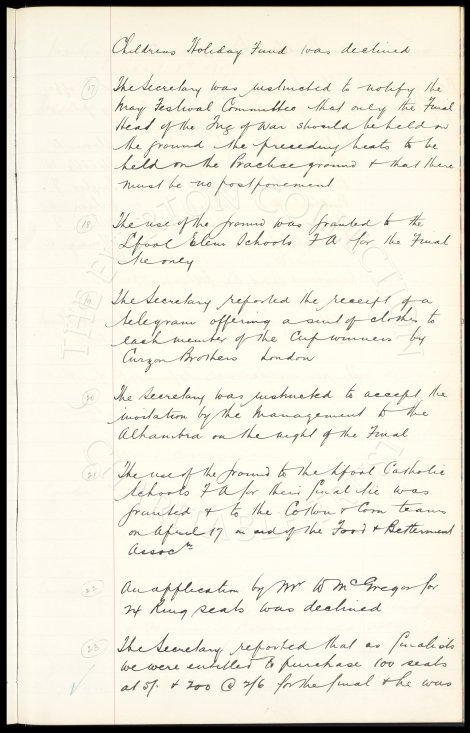 Childrens Holiday Fund was declined
17 The Secretary was instructed to notify the
May Festival Committee that only the Final
Head of the Tug of War should be held on
the ground the preceding heats to be
held on the Practice ground & that there
must be no postponement
18 The use of the ground was granted to the
Lpool Elem Schools F A for the Final
tie only
19 The Secretary reported the receipt of a
telegram offering a suit of clothes to
each member of the Cup winners by
Curzon Brothers London
20 The Secretary was instructed to accept the
invitation by the Management to the
Alhambra on the night of the Final
21 The use of the ground to the Lpool Catholic
Schools F A for their final tie was
granted & to the Cotton & Corn teams
on April 17 in aid of the Food & Betterment
Assocn
22 An application by Mr W McGregor for
24 Ring seats was declined
23 The Secretary reported that as finalists
we were entitled to purchase 100 seats
at 5/- & 200 @ 2/6 for the final & he was